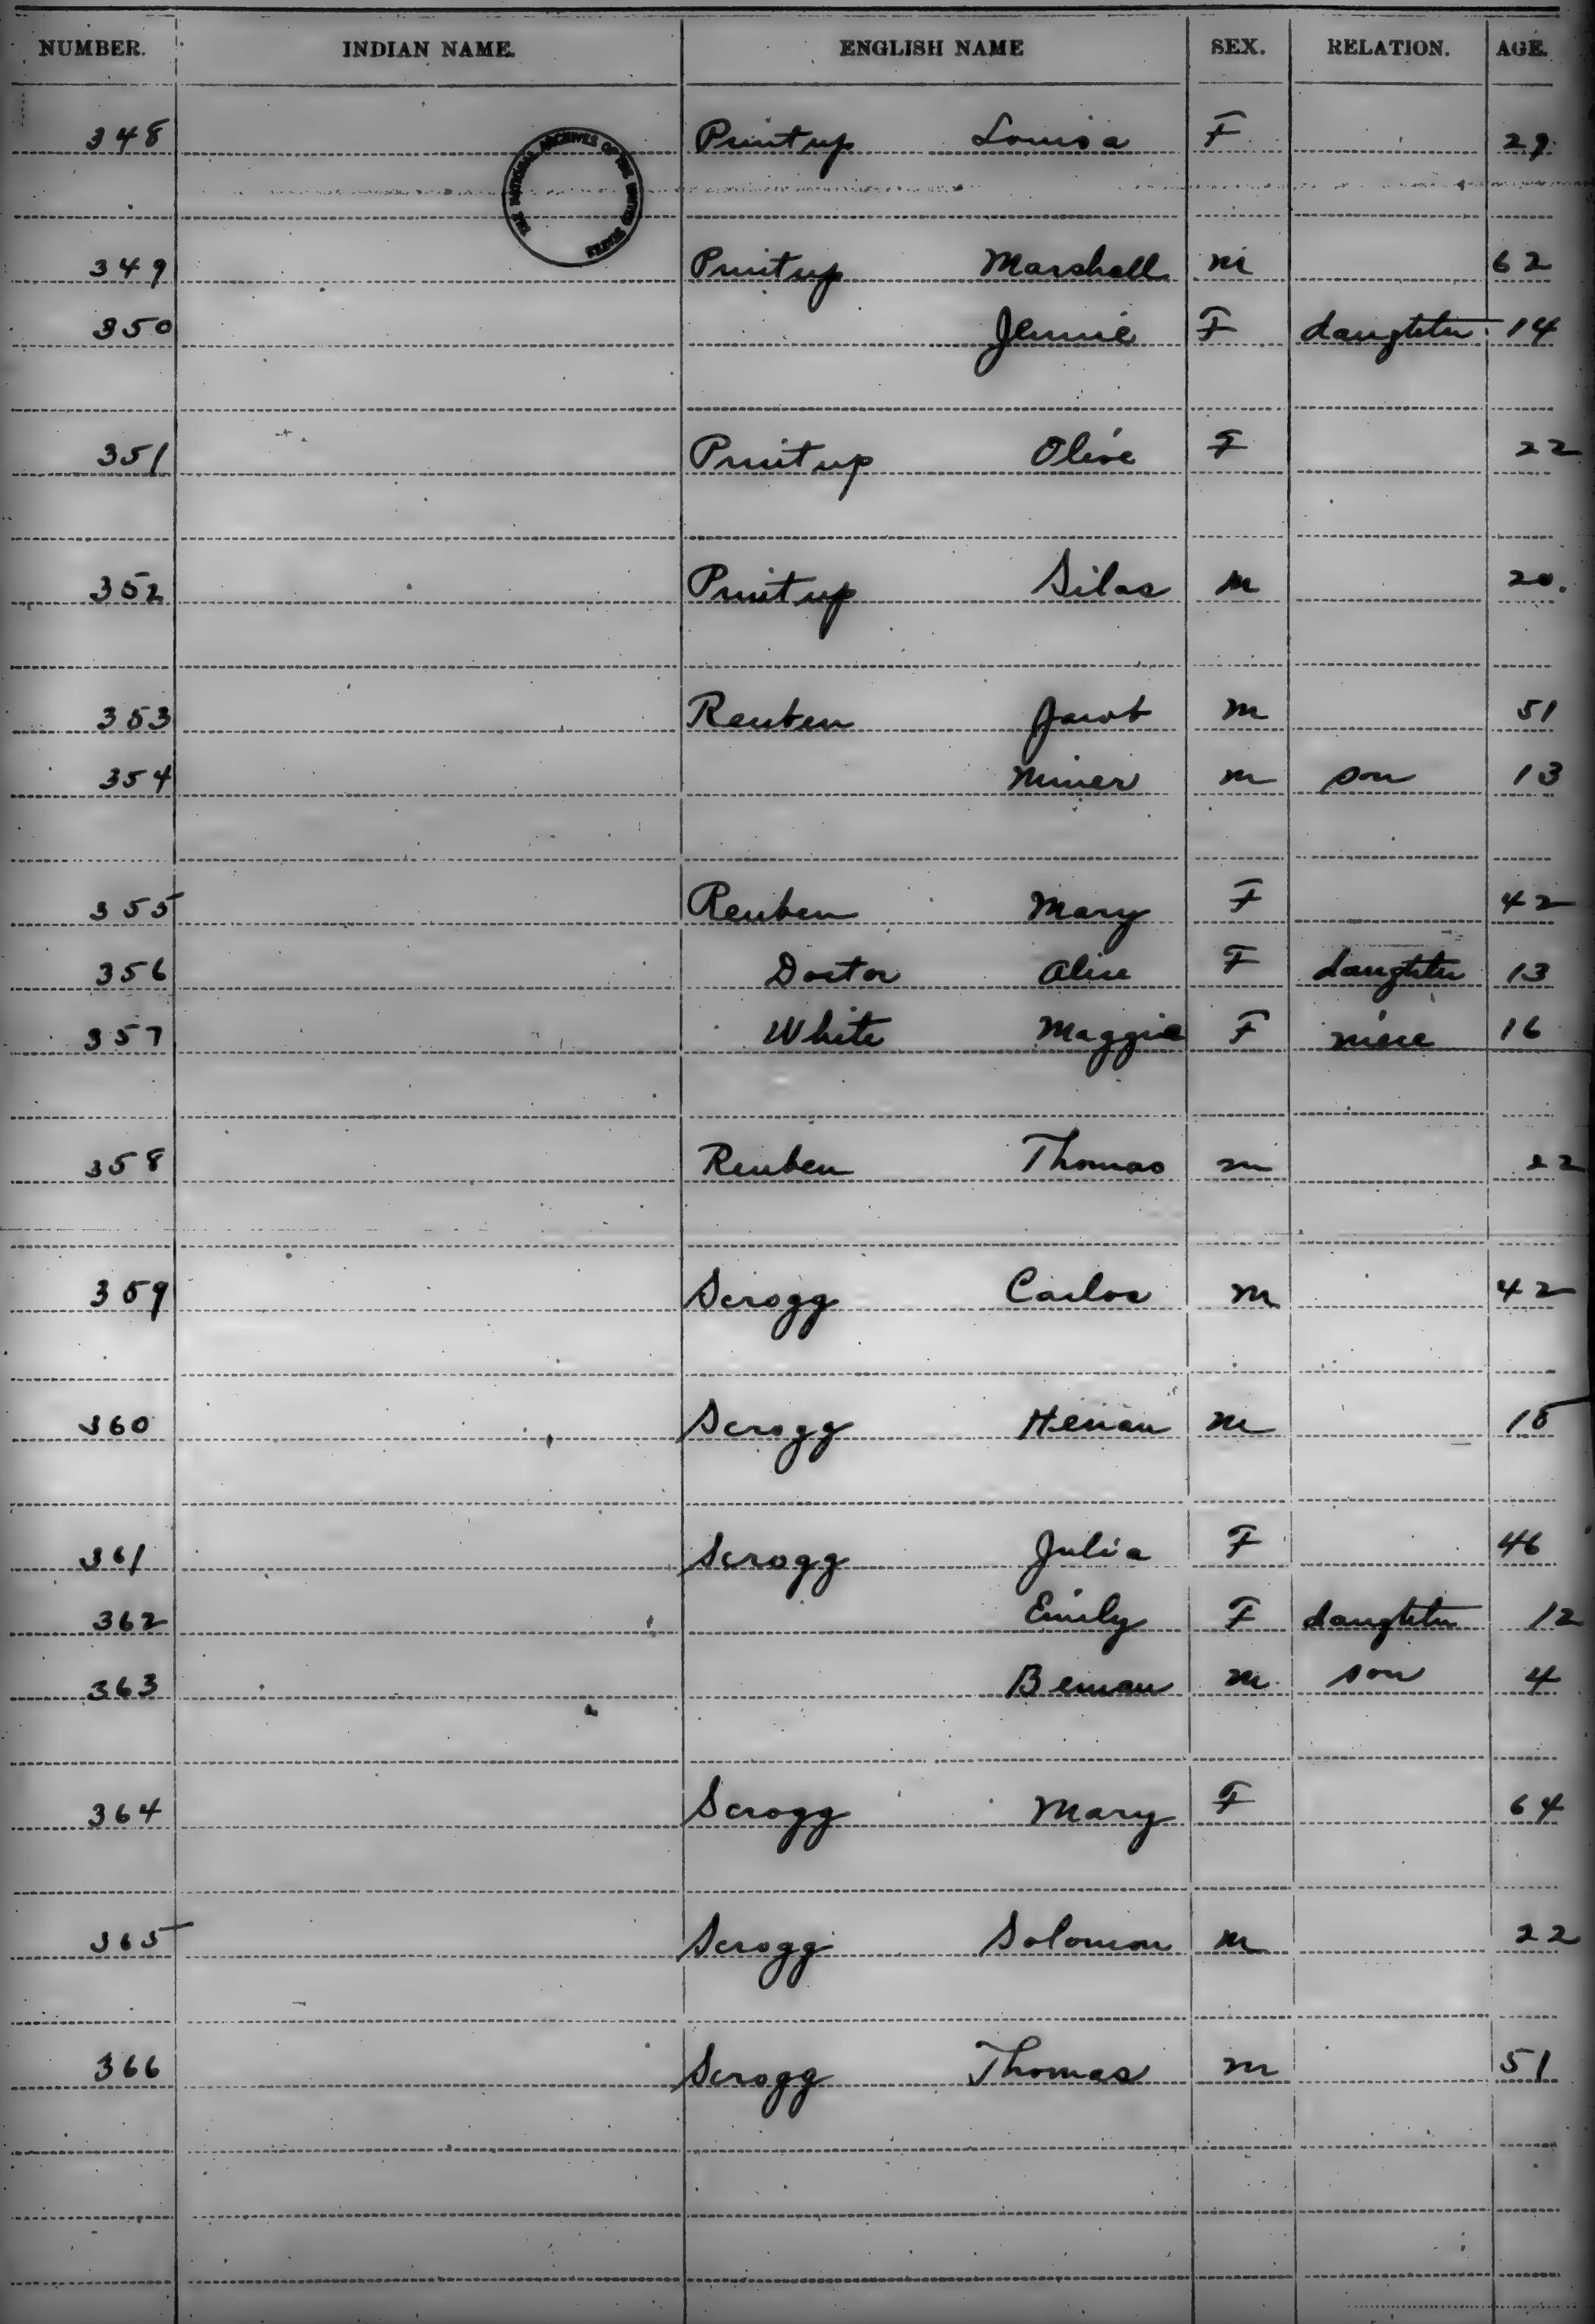 NUMBER. INDIAN NAME. ENGLISH NAME SEX. RELATION. AGE.
348 Printup Louisa F 29
THE NATIONAL ARCHIVES OF THE UNITED STATES
349 Printup Marshall M 62
350 Jennie F daughter 14
351 Printup Olive F 22
352 Printup Silas M 20
353 Reuben Jacob M 51
354 Miner M son 13
355 Reuben Mary F 42
356 Doctor Alice F daughter 13
357 White Maggie F niece 16
358 Reuben Thomas M 22
359 Scrogg Carlos M 42
360 Scrogg M 15
361 Scrogg Julia F 46
362 Emily F daughter 12
363 Beman M son 4
364 Scrogg Mary F 64
365 Scrogg Solomon M 22
366 Scrogg Thomas M 51